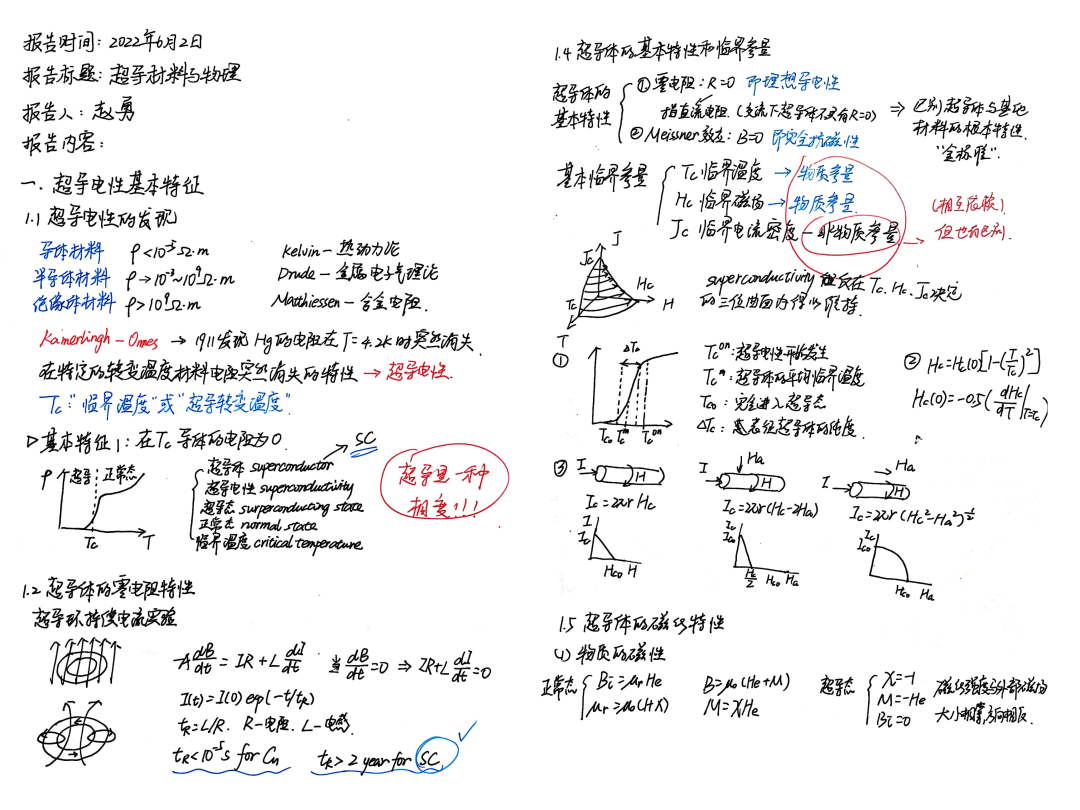 报告时间：2022年6月2日
报告标题：超导材料与物理
报告人：赵勇
报告内容：
一. 超导电性基本特征
1.1 超导电性的发现
导体材料 ρ<10⁻³Ω·m Kelvin—热动力论
半导体材料 ρ→10⁻³~10⁹Ω·m Drude—金属电子气理论
绝缘体材料 ρ>10⁹Ω·m Matthiessen—合金电阻.
Kamerlingh-Onnes → 1911发现Hg的电阻在T=4.2K时突然消失.
在特定的转变温度材料电阻突然消失的特性 → 超导电性.
Tc:"临界温度"或"超导转变温度".
▷基本特征1：在Tc导体的电阻为0.
SC
ρ 超导 正常态
Tc T
超导体 superconductor
超导电性 superconductivity
超导态 surperconducting state
正常态 normal state
临界温度 critical temperature
超导是一种
相变!!!
1.2 超导体的零电阻特性
超导环持续电流实验
-A dB/dt = IR + L dI/dt 当 dB/dt=0 ⇒ IR+L dI/dt=0
I(t)=I(0) exp(-t/tR)
tR=L/R. R-电阻. L-电感.
tR<10⁻⁵s for Cu tR>2 year for SC
1.4 超导体的基本特性和临界参量
超导体的
基本特性
①零电阻：R=0 即理想导电性
指直流电阻.（交流下超导体不又有R=0）
②Meissner效应：B=0 即完全抗磁性
⇒ 区别超导体与其他
材料的根本特性.
"金标准".
基本临界参量
Tc 临界温度 → 物质参量
Hc 临界磁场 → 物质参量.
Jc 临界电流密度—非物质参量
（相互依赖）
但也有区别.
J
Jc
Hc H
Tc
T
superconductivity 在Tc、Hc、Jc决定
的三位曲面内得以维持
①
ΔTc
Tco Tcᵐ Tcᵒⁿ
Tcᵒⁿ：超导电性开始发生
Tcᵐ：超导体的平均临界温度
Tco：完全进入超导态
ΔTc：意着征超导体的纯度.
② Hc=Hc(0)[1-(T/Tc)²]
Hc(0)=-0.5(dHc/dT|T=Tc)
③ I H
Ic=2πr Hc
I
Ic
Hco H
I Ha H
Ic=2πr(Hc-2Ha)
Ic
Ico
Hc/2 Hco Ha
Ha
I H
Ic=2πr(Hc²-Ha²)^½
Ic
Ico
Hco Ha
1.5 超导体的磁化特性
(1) 物质的磁性
正常态
Bi=μrHe
μr=μ0(1+X)
B=μ0(He+M)
M=XHe
超导态
X=-1
M=-He
Bi=0
磁化强度与外部磁场
大小相等,方向相反.